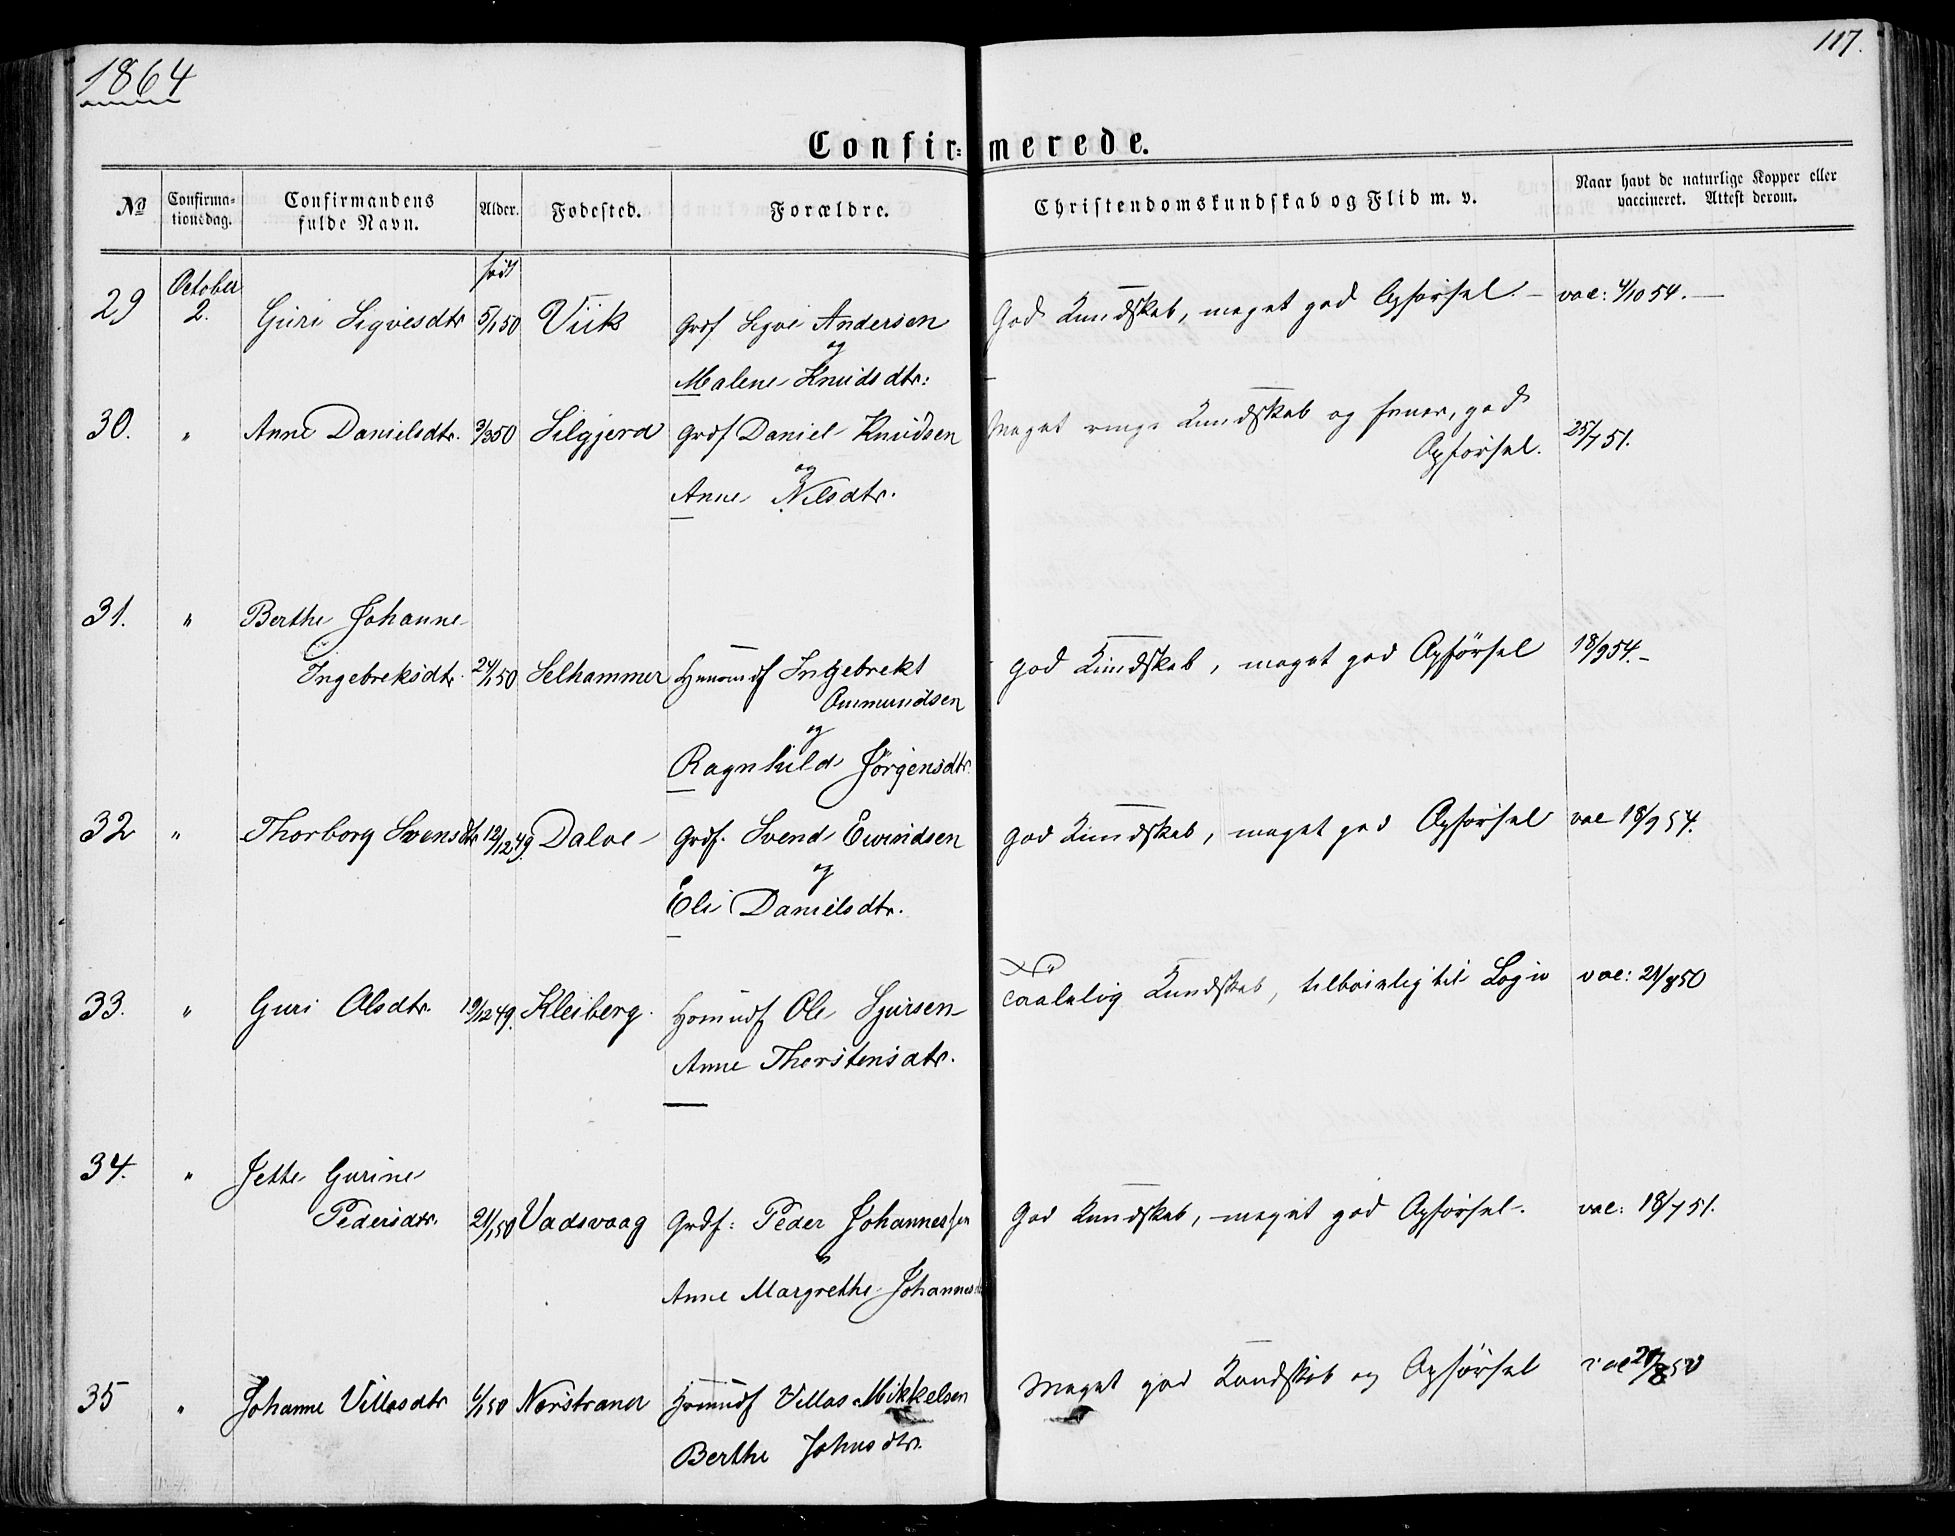 1864
117.
Confir=merede.
No
Confirma-
tionsdag.
Confirmandens
fulde Navn.
Alder.
Fødested.
Forældre.
Christendomskundskab og Flid m. v.
Naar havt de naturlige Kopper eller
vaccineret. Attest derom.
født
29 October 2. Guri Sigvesdtr 5/1 50 Viik Grdf Sigve Andersen God Kundskab, meget god Opførsel. – vac: 4/10 54. –
og
Malene Knudsdtr:
30. " Anne Danielsdtr. 3/3 50 Silgjerd Grdf Daniel Knudsen Meget ringe Kundskab og Evner, god
Opførsel. 25/7 51.
og
Anne Nilsdtr.
31. " Berthe Johanne
Ingebreksdtr. 24/1 50 Selhammer Huusmdf Ingebrekt god Kundskab, meget god Opførsel 18/9 54. –
Ommundsen
og
Ragnhild Jørgensdtr.
32 " Thorborg Svensdtr 12/12 49. Dalve Grdf. Svend Evindsen god Kundskab, meget god Opførsel vac 18/9 54.
og
Eli Danielsdtr.
33. " Guri Olsdtr. 19/12 49. Kleiberg. Huusmdf Ole Sjursen taalelig Kundskab, tilbøielig til Løgn vac: 21/8 50
Anne Thorstensdtr.
34. " Jette Gurine
Pedersdtr. 21/1 50 Vadsvaag Grdf: Peder Johannessen God Kundskab, meget god Opførsel. vac: 18/7 51.
Anne Margrethe Johannes
35 " Johanne Villasdtr 6/1 50 Nørstrand Huusmdf Villas Mikkelsen Meget god Kundskab og Opførsel vac 21/8 50
Berthe Johnsdtr.